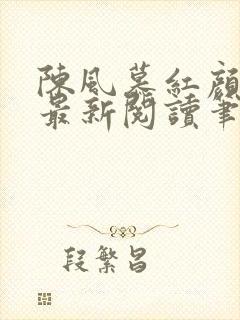 陳風慕紅顏
最新閱讀筆
段繁昌